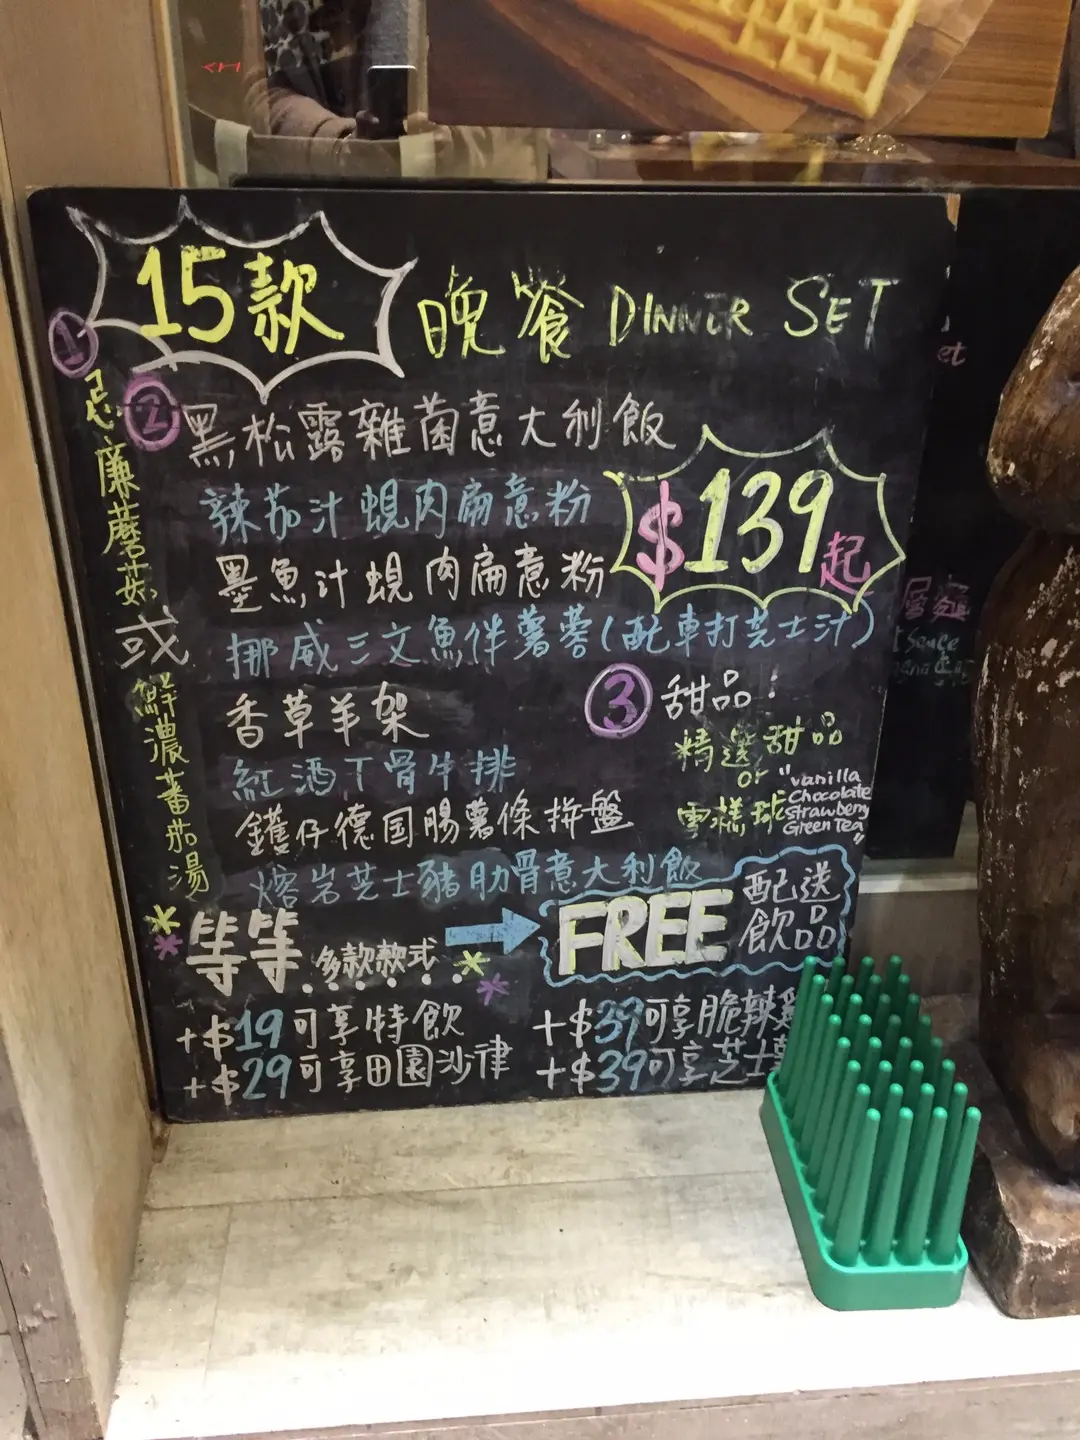 15款 晚餐 DINNER SET
1
忌廉蘑菇或鮮濃蕃茄湯
2
黑松露雜菌意大利飯
辣茄汁蜆肉扁意粉
$139起
墨魚汁蜆肉扁意粉
挪威三文魚伴薯蓉(配車打芝士汁)
香草羊架
紅酒T骨牛排
鑊仔德国腸薯條拼盤
熔岩芝士豬肋骨意大利飯
3 甜品:
精選甜品
or
雪糕球
"vanilla
Chocolate
strawberry
Green Tea"
等等多款款式......
FREE 配送飲品
+$19可享特飲
+$29可享田園沙律
+$39可享脆辣雞
+$39可享芝士
et
sauce